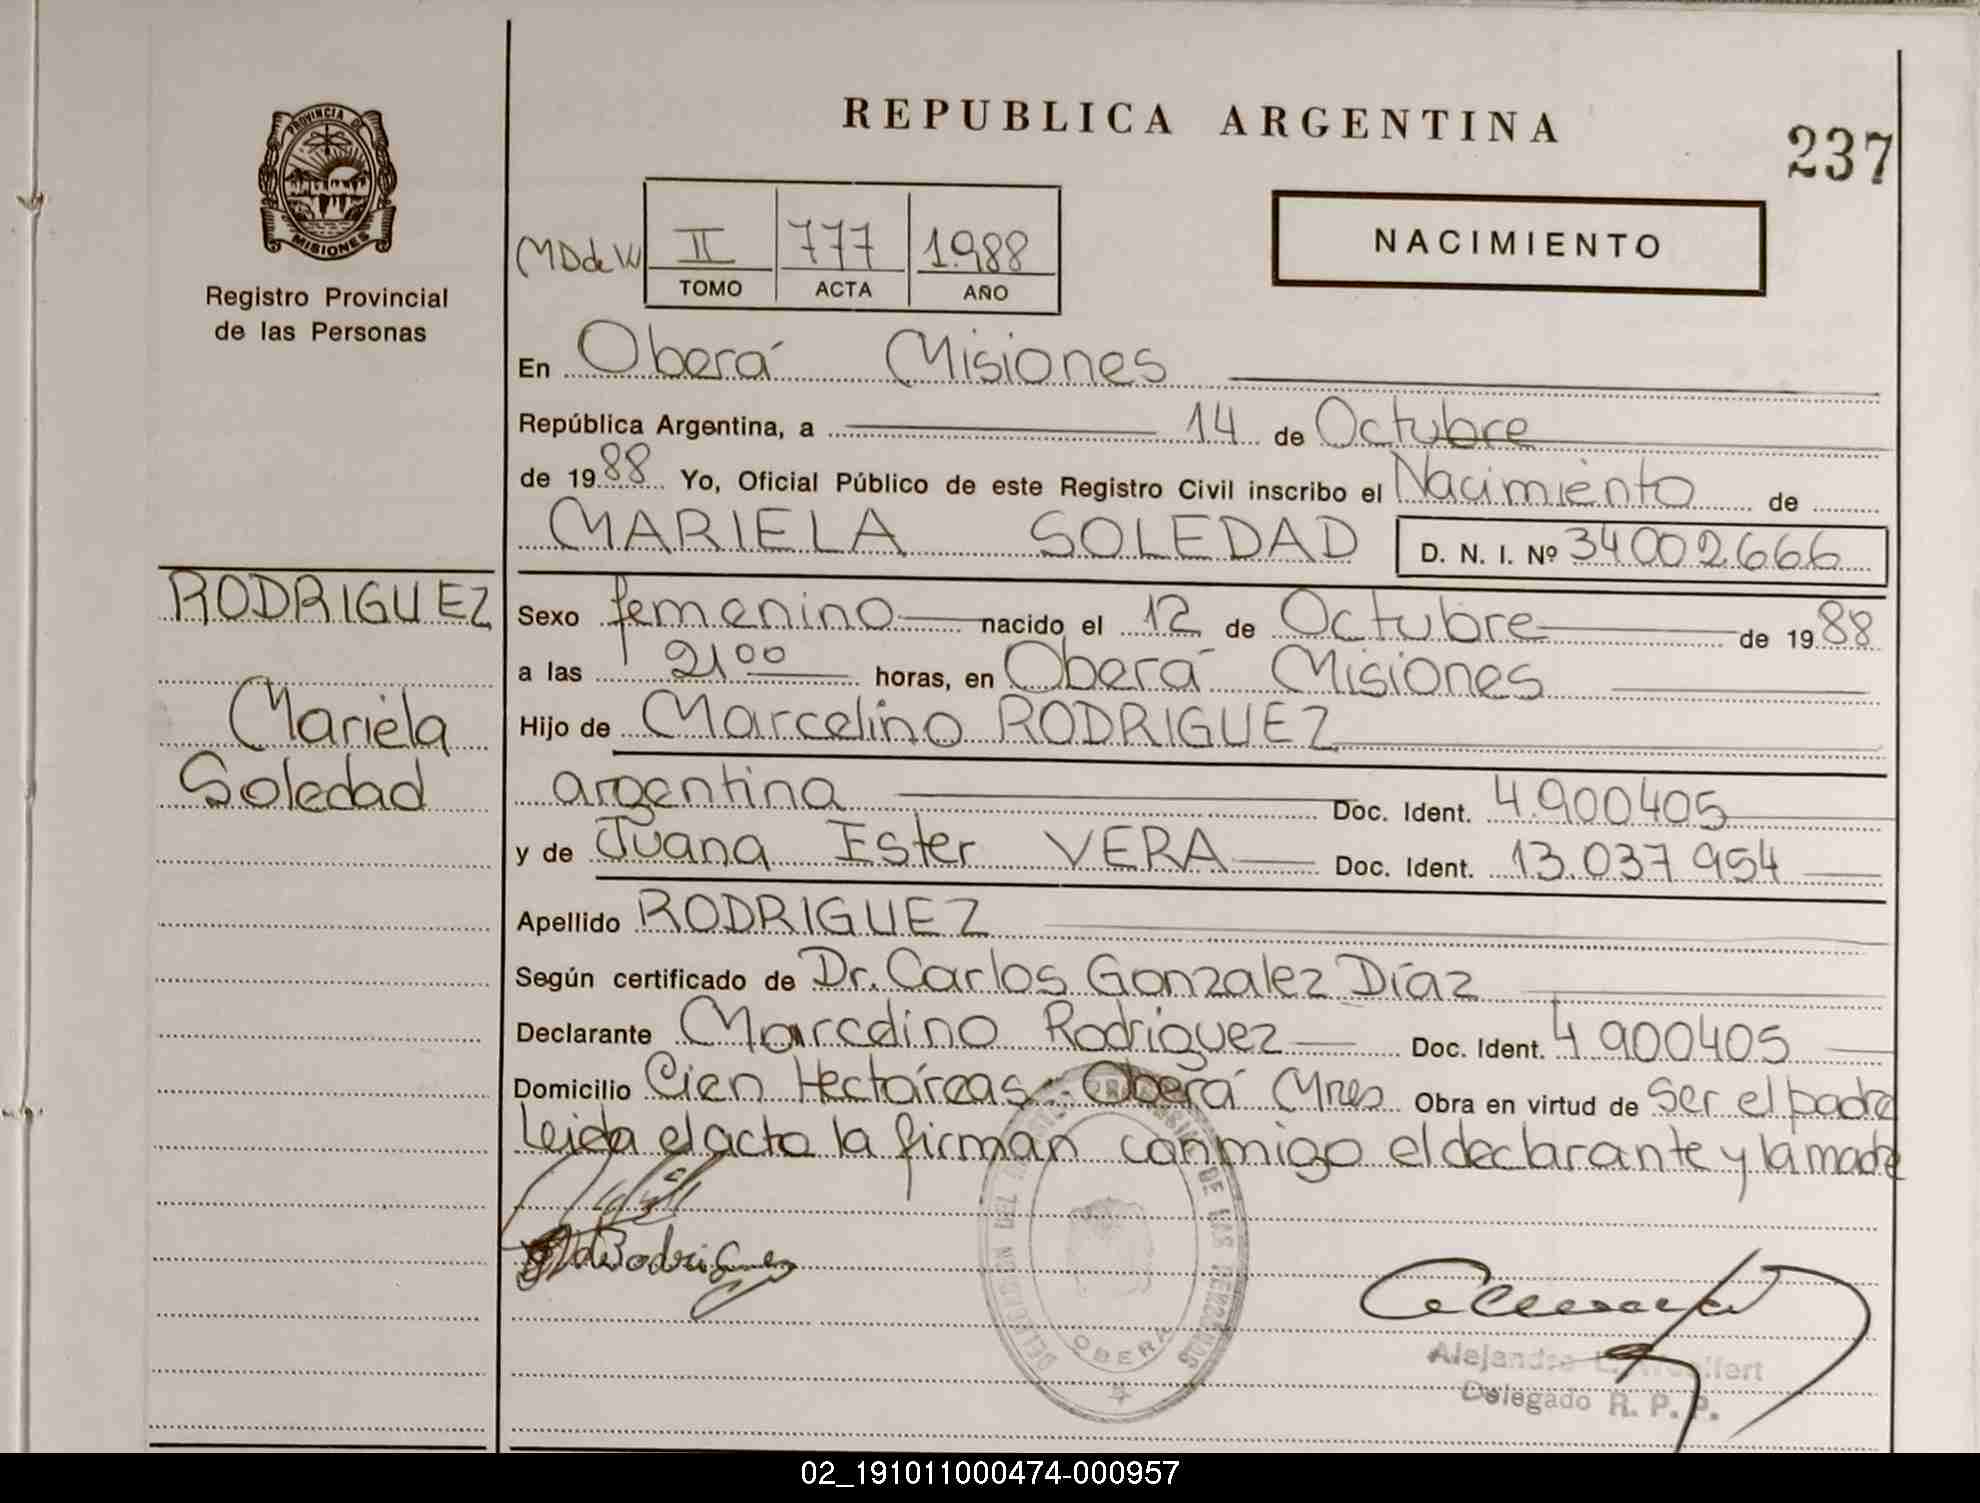 REPUBLICA ARGENTINA
237
PROVINCIA DE
MISIONES
Registro Provincial
de las Personas
MD de W
II 777 1.988
TOMO ACTA AÑO
NACIMIENTO
En Oberá Misiones
República Argentina, a 14 de Octubre
de 1988 Yo, Oficial Público de este Registro Civil inscribo el Nacimiento de
MARIELA SOLEDAD D. N. I. Nº 34002.666
RODRIGUEZ
Mariela
Soledad
Sexo femenino nacido el 12 de Octubre de 1988
a las 21 00 horas, en Oberá Misiones
Hijo de Marcelino RODRIGUEZ
argentina Doc. Ident. 4.900405
y de Juana Ester VERA Doc. Ident. 13.037954
Apellido RODRIGUEZ
Según certificado de Dr. Carlos Gonzalez Díaz
Declarante Marcelino Rodriguez Doc. Ident. 4 900405
Domicilio Cien Hectáreas - Oberá Mnes Obra en virtud de ser el padre
Leida el acto la firman conmigo el declarante y la madre
de Rodriguez
DE LAS PERSONAS
OBERA
Delegado R. P. P.
02_191011000474-000957